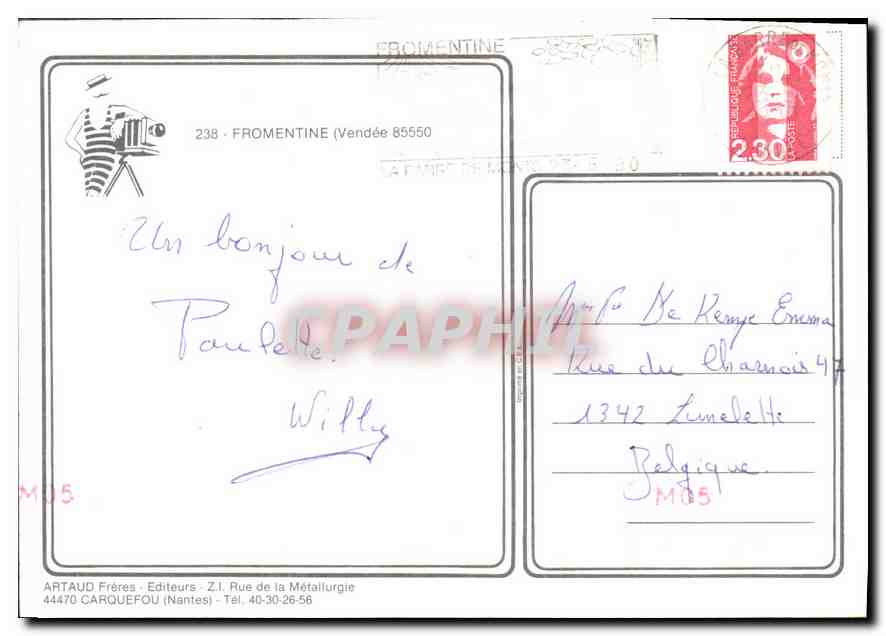 FROMENTINE
238 - FROMENTINE (Vendée 85550
RÉPUBLIQUE FRANÇAISE
2,30
LA POSTE
LA BARRE DE MONTS
Un bonjour de
Paulette.
Willy
CPAPHIL
De Kemye Emma
Rue du Chamois 47
1342 Limelette
Belgique.
Imprimé en C.E.E.
M05
M05
ARTAUD Frères - Editeurs - Z.I. Rue de la Métallurgie
44470 CARQUEFOU (Nantes) - Tél. 40-30-26-56